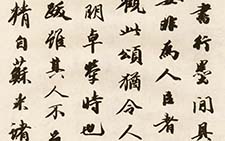 書行墨間具
妄非為人臣者
觀此頌猶令人
朗卓犖時也
跋雖其人不足
精自蘇米諸